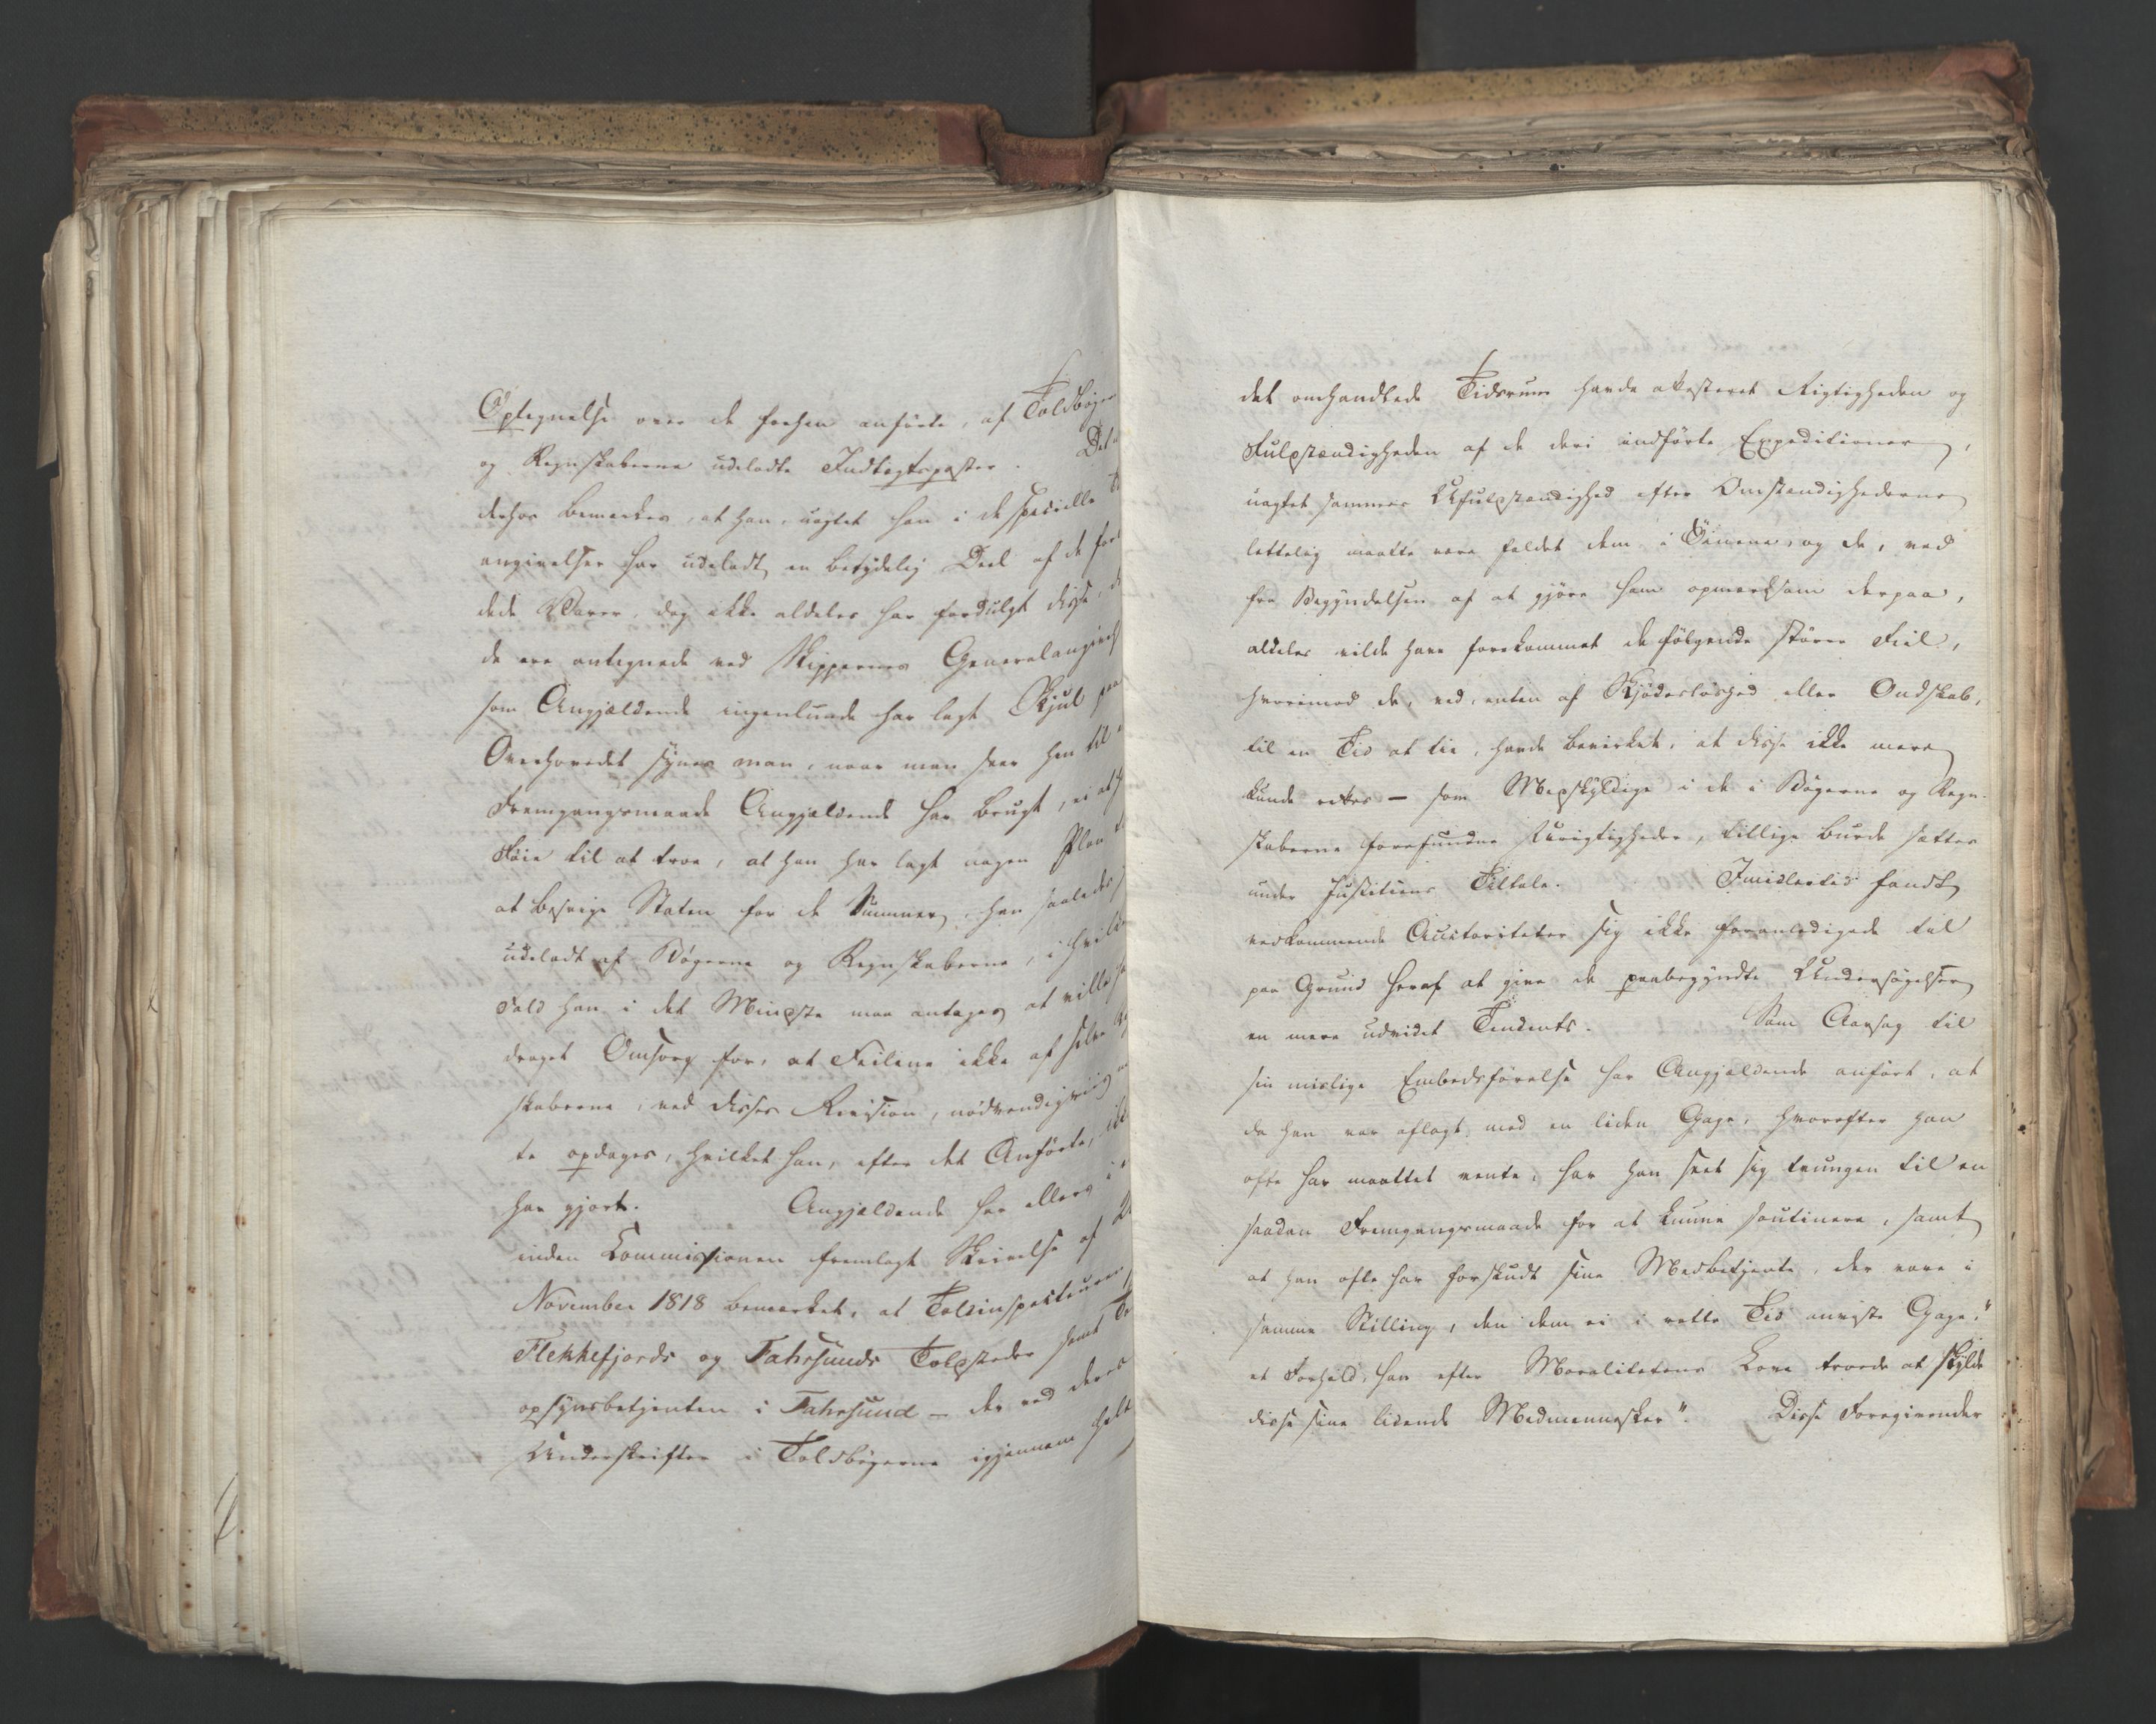 Optegnelse over de forhen anførte, af Toldbøger
og Regnskaberne udeladte Indtægtsposter. Det
derhos bemærkes, at han, uagtet han i de specielle
angivelser har udeladt en betydelig Deel af de for
dede Varer, dog ikke aldeles har fordulgt disse,
de ere antegnede ved Skippernes Generalangivels
som Angjældende ingenlunde har lagt Skjul paa
Overhovedet synes man, naar man seer hen til
Fremgangsmaade Angjældende har brugt, ei at
Føie til at troe, at han har lagt nogen Plan
at besvige Staten for de Summer, han saaledes
udeladt af Bøgerne og Regnskaberne, i hvilke
Fald han i det Mindste maa antages at ville
draget Omsorg for, at Feilene ikke af selve
skaberne, ved disses Revision, nødvendigviis
te opdages, hvilket han, efter det Anførte,
har gjort. Angjældende har ellers i
inden Commissionen fremlagt Skrivelse af
November 1818 bemærket, at Toldinspecteuren
Flekkefjords og Fahrsunds Toldsteder samt
opsynsbetjenten i Fahrsund – der ved deres
Underskrifter i Toldbøgerne igjennem hele
det omhandlede Tidsrum havde attesteret Rigtigheden og
Fuldstændigheden af de deri indførte Expeditioner,
uagtet sammes Ufuldstændighed efter Omstændighederne
lettelig maatte være faldet dem i Øinene, og de, ved
fra Begyndelsen af at gjøre ham opmærksom derpaa,
aldeles vilde have forekommet de følgende større Feil,
hvorimod de, ved, enten af Skjødesløshed eller Ondskab,
til en Tid at tie, havde bevirket, at disse ikke mere
kunde rettes – som Medskyldige i de i Bøgerne og Regn-
skaberne forefundne Urigtigheder, tillige burde sættes
under Justitiens Tiltale. Imidlertid fandt
vedkommende Auctoriteter sig ikke foranlediget til
paa Grund heraf at give de paabegyndte Undersøgelser
en mere udvidet Tendents. Som Aarsag til
sin mislige Embedsførelse har Angjældende anført, at
da han var aflagt med en liden Gage, hvorefter han
ofte har maattet vente, har han seet sig tvungen til en
saadan Fremgangsmaade for at kunne soutinere, samt
at han ofte har forskudt sine Medbetjente, der vare i
samme Stilling, den dem ei i rette Tid anviste Gage,"
et Forhold, han efter Moralitetens Love troede at skylde
disse sine lidende Medmennesker". Disse Foregivender